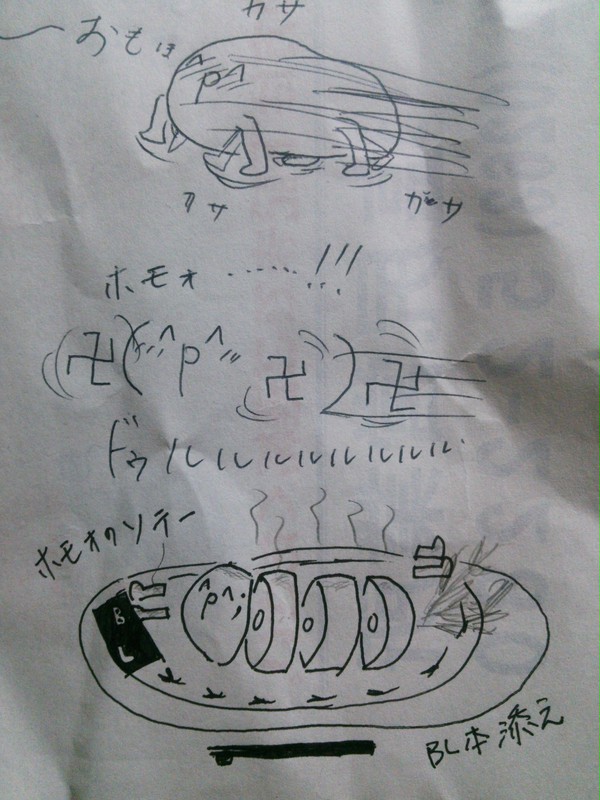 カサ
おもほ
^p^
カサ
ガサ
ホモォ……!!!
卍(^p^卍)卍
ドゥルルルルルルルルル
ホモォのソテー
^p^
BL
BL本添え